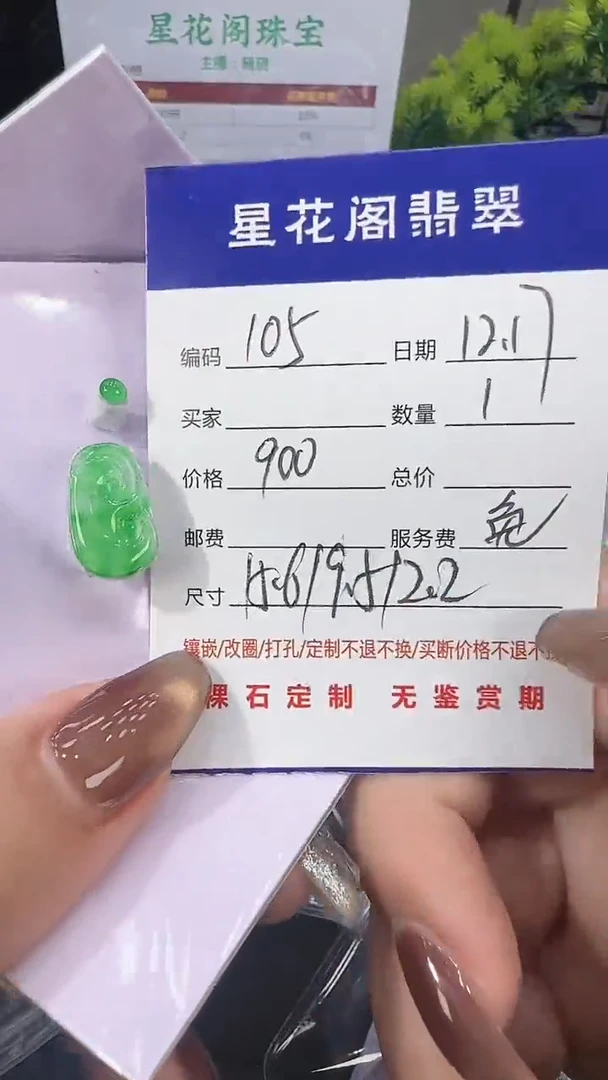 星花阁珠宝
星花阁翡翠
编码 105 日期 12.17
买家 数量 1
价格 900 总价
邮费 服务费 免
尺寸 15.6/9.5/2.2
镶嵌/改圈/打孔/定制不退不换/买断价格不退不
裸石定制 无鉴赏期